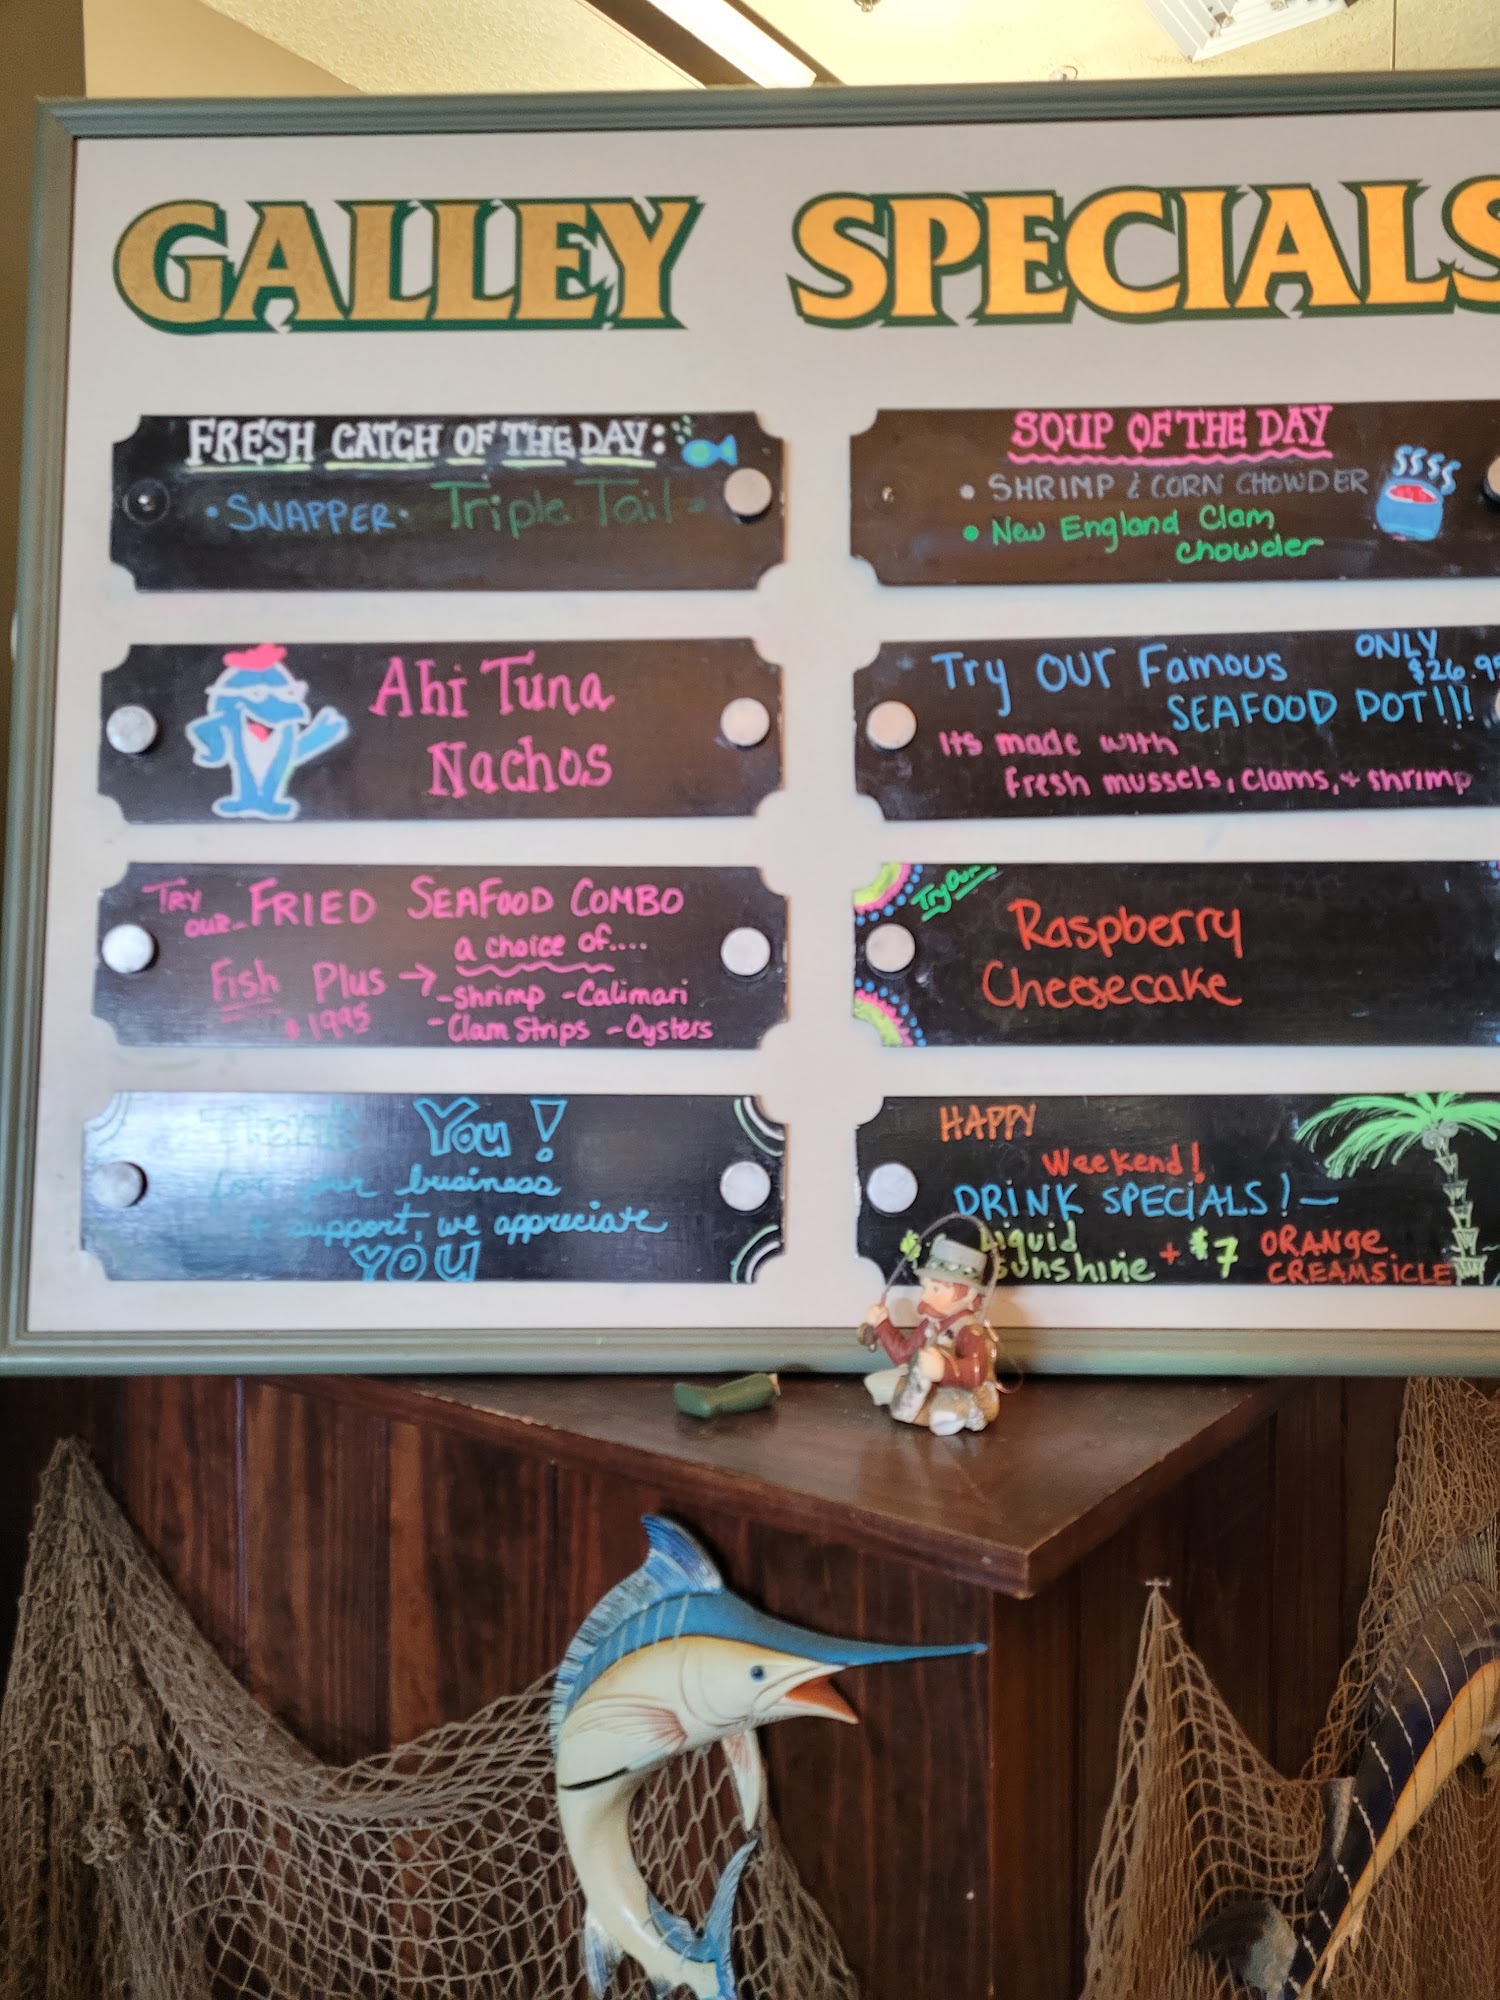 GALLEY SPECIALS
FRESH CATCH OF THE DAY:
• SNAPPER • Triple Tail •
SOUP OF THE DAY
• SHRIMP & CORN CHOWDER
• New England Clam
Chowder
Ahi Tuna
Nachos
Try our Famous ONLY
$26.95
SEAFOOD POT!!!
Its made with
fresh mussels, clams, + shrimp
TRY
our... FRIED SEAFOOD COMBO
a choice of....
Fish Plus →
-Shrimp -Calimari
$1995
-Clam Strips -Oysters
Try Our
Raspberry
Cheesecake
Thank You!
for your business
+ support, we appreciate
YOU
HAPPY
Weekend!
DRINK SPECIALS! —
Liquid
Sunshine + $7 ORANGE
CREAMSICLE